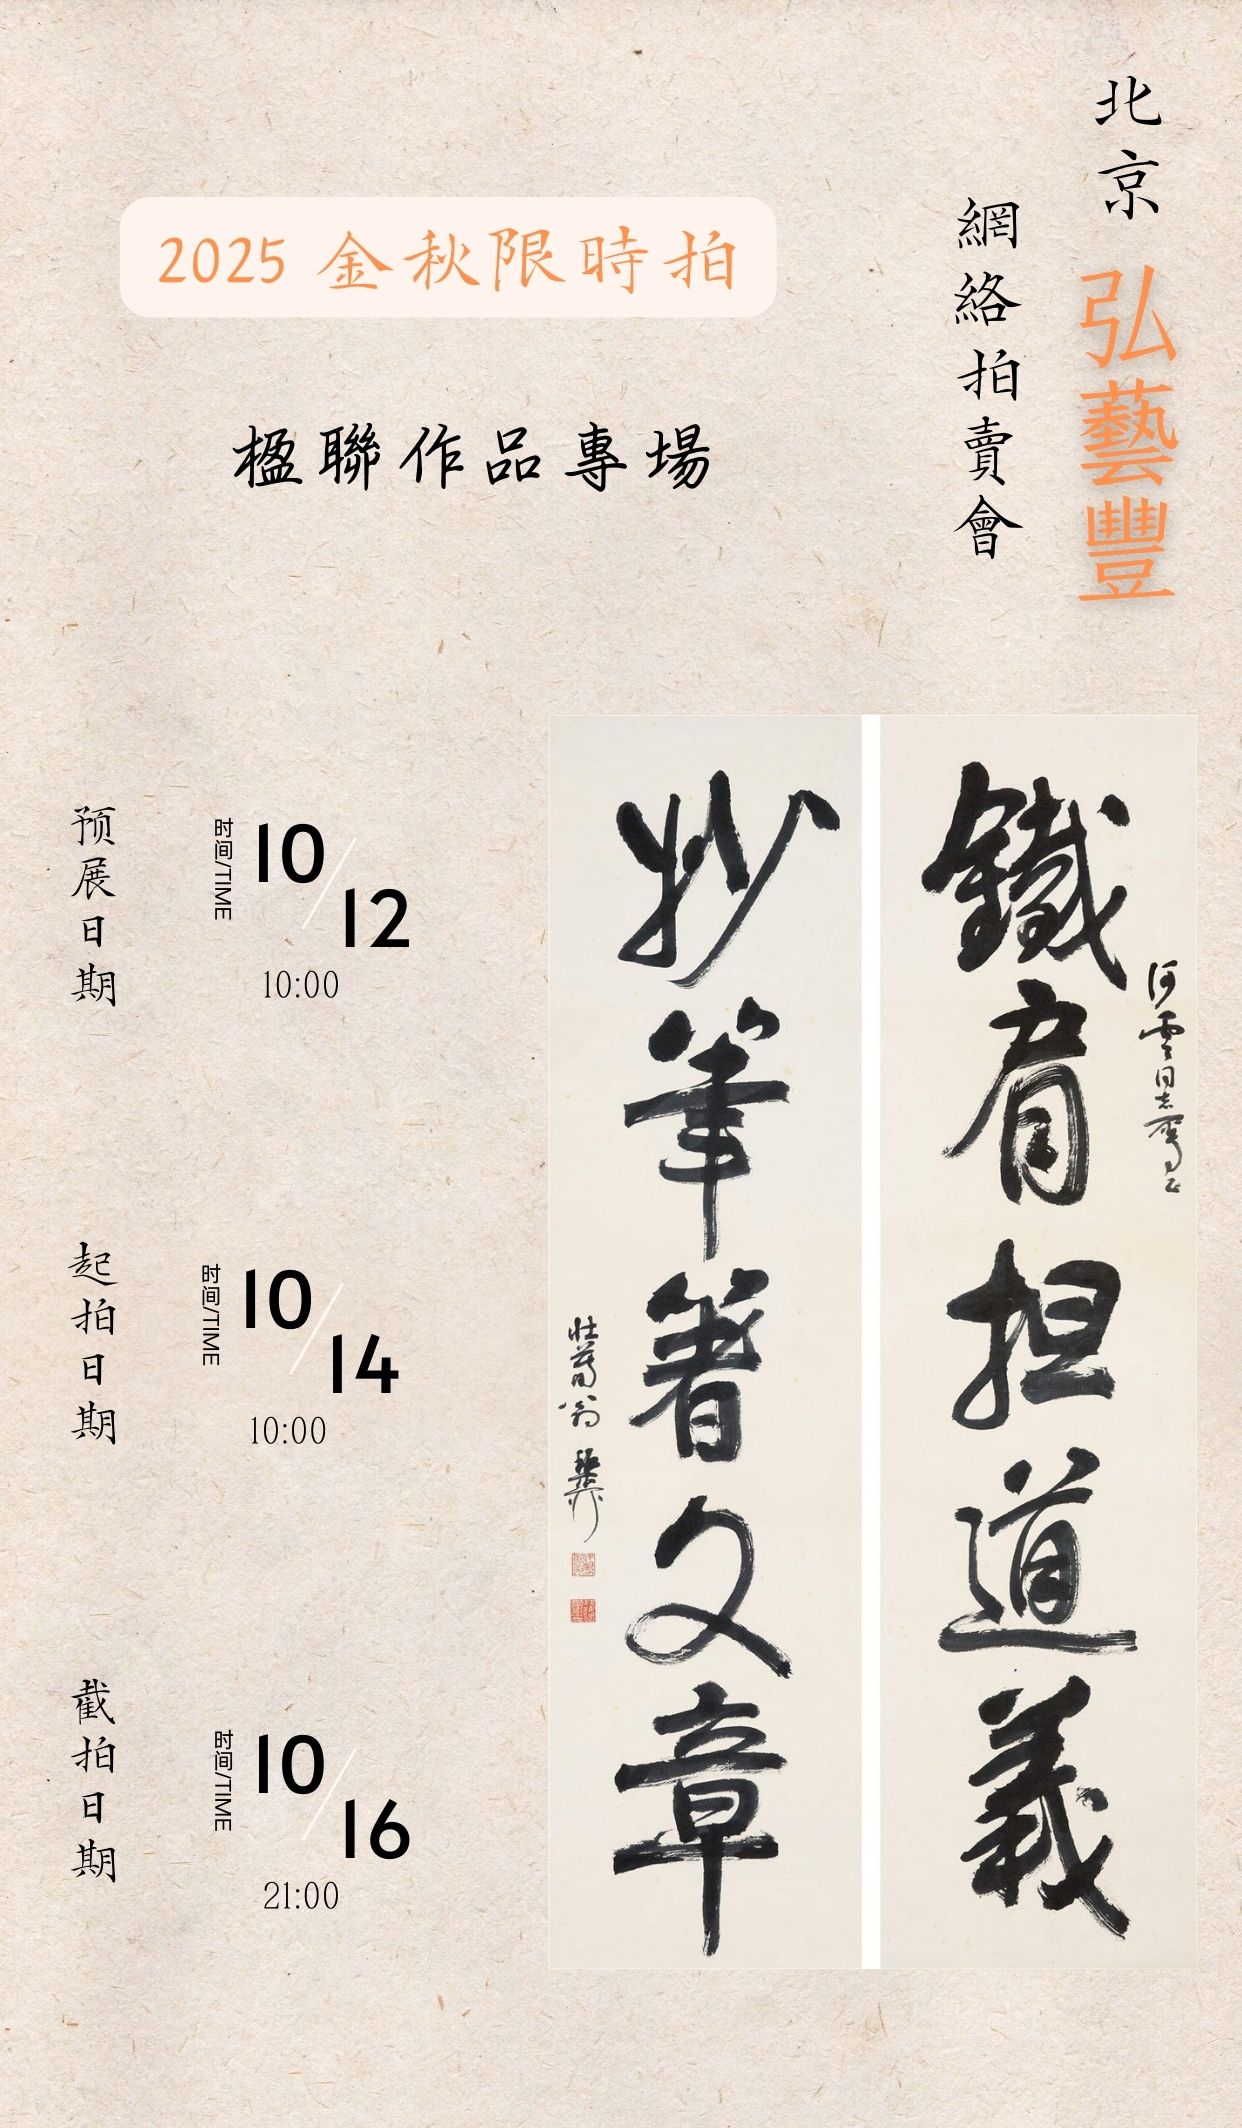 北京 弘藝豐
網絡拍賣會
2025 金秋限時拍
楹聯作品專場
预展日期
时间/TIME
10/12
10:00
起拍日期
时间/TIME
10/14
10:00
截拍日期
时间/TIME
10/16
21:00
河雲同志屬正
鐵肩担道義
妙筆著文章
壯暮翁 稚柳